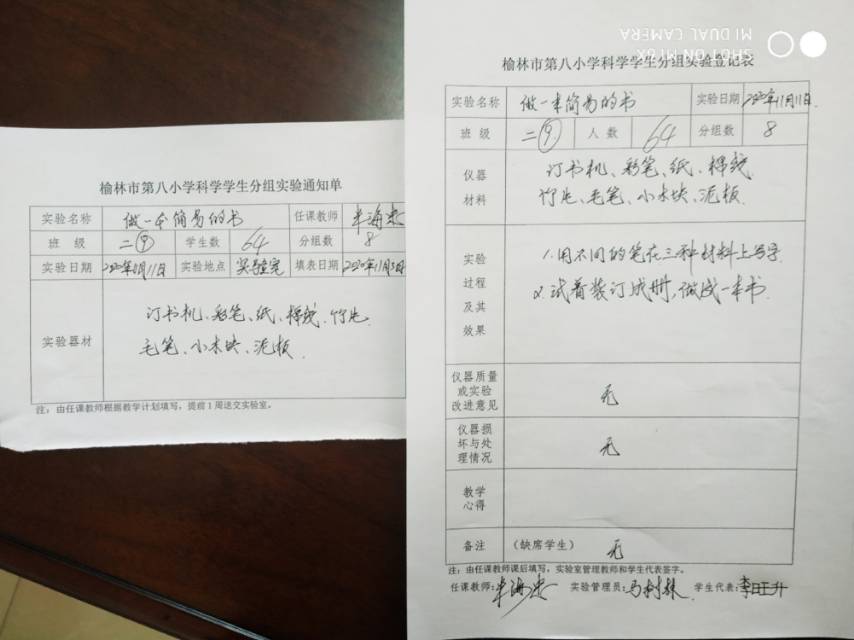 榆林市第八小学科学学生分组实验通知单
实验名称 做一本简易的书 任课教师
班 级 二⑨ 学生数 64 分组数 8
实验日期 2020年11月11日 实验地点 实验室 填表日期 2020年11月3日
实验器材
订书机、彩笔、纸、棉线、竹片
毛笔、小木块、泥板
注：由任课教师根据教学计划填写，提前1周送交实验室。
榆林市第八小学科学学生分组实验登记表
实验名称 做一本简易的书 实验日期 2020年11月11日
班 级 二⑨ 人 数 64 分组数 8
仪器
材料
订书机、彩笔、纸、棉线
竹片、毛笔、小木块、泥板
实验
过程
及其
效果
1.用不同的笔在三种材料上写字
2.试着装订成册,做成一本书
仪器质量
或实验
改进意见
无
仪器损
坏与处
理情况
无
教学
心得
备注 （缺席学生） 无
注：由任课教师课后填写，实验室管理教师和学生代表签字。
任课教师: 实验管理员:马树林 学生代表:李旺升
SHOT ON MI 6X
MI DUAL CAMERA